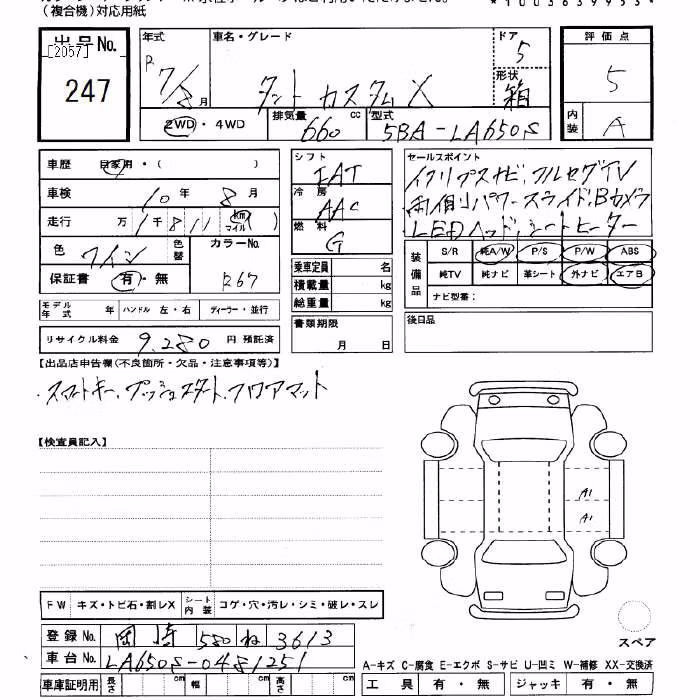 （複合機）対応用紙
*1003639953*
出品No.
[2057]
247
年式
R 7/8 月
車名・グレード
タント カスタム X
ドア 5
形状 箱
評価点 5
内装 A
2WD ・ 4WD
排気量 660 cc
型式 5BA-LA650S
車歴 自家用・（ ）
車検 10 年 8 月
走行 万 1 千 811 km マイル
色 ワイン 色替
カラーNo. R67
保証書 有・無
モデル年式 年 ハンドル 左・右 ディーラー・並行
リサイクル料金 9,280 円 預託済
シフト IAT
冷房 AAC
燃料 G
乗車定員 名
積載量 kg
総重量 kg
書類期限
月 日
セールスポイント
イクリプスナビ、フルセグTV
両側パワースライド、Bカメラ
LEDヘッド、シートヒーター
装備品
S/R 純A/W P/S P/W ABS
純TV 純ナビ 革シート 外ナビ エアB
ナビ型番：
後日品
【出品店申告欄(不良箇所・欠品・注意事項等)】
・スマートキー、プッシュスタート、フロアマット
【検査員記入】
A1
A1
FW キズ・トビ石・割レX シート内装 コゲ・穴・汚レ・シミ・破レ・スレ
スペア
登録No. 岡崎 580 ね 3613
車台No. LA650S-0481251
A-キズ C-腐食 E-エクボ S-サビ U-凹ミ W-補修 XX-交換済
車庫証明用 長さ cm 幅 cm 高さ cm
工具 有・無 ジャッキ 有・無